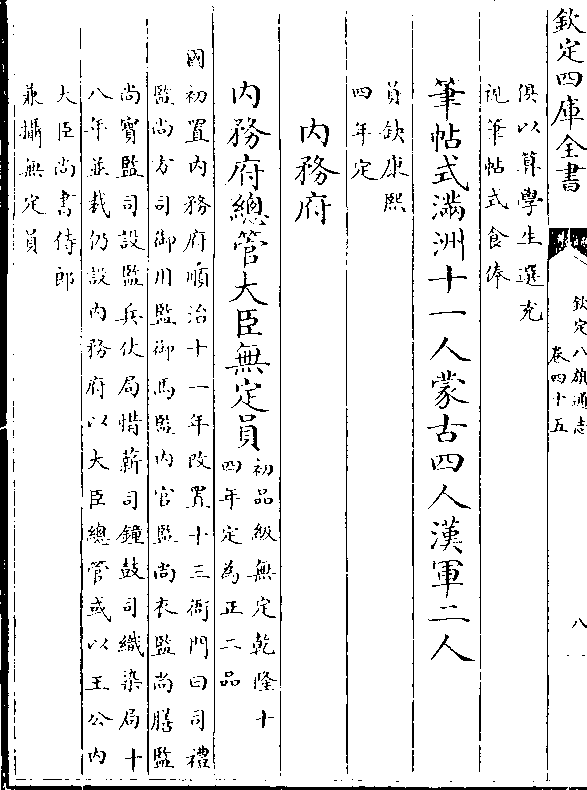 欽定四庫全書
欽定八旗通志
卷四十五
八
俱以算學生選充
視筆帖式食俸
筆帖式滿洲十一人蒙古四人漢軍二人
員缺康熙
四年定
内務府
内務府總管大臣無定員
初品級無定乾隆十
四年定為正二品
國初置内務府順治十一年改置十三衙門曰司禮
監尚方司御用監御馬監内官監尚衣監尚膳監
尚寶監司設監兵仗局惜薪司鐘鼓司織染局十
八年並裁仍設内務府以大臣總管或以王公内
大臣尚書侍郎
兼攝無定員